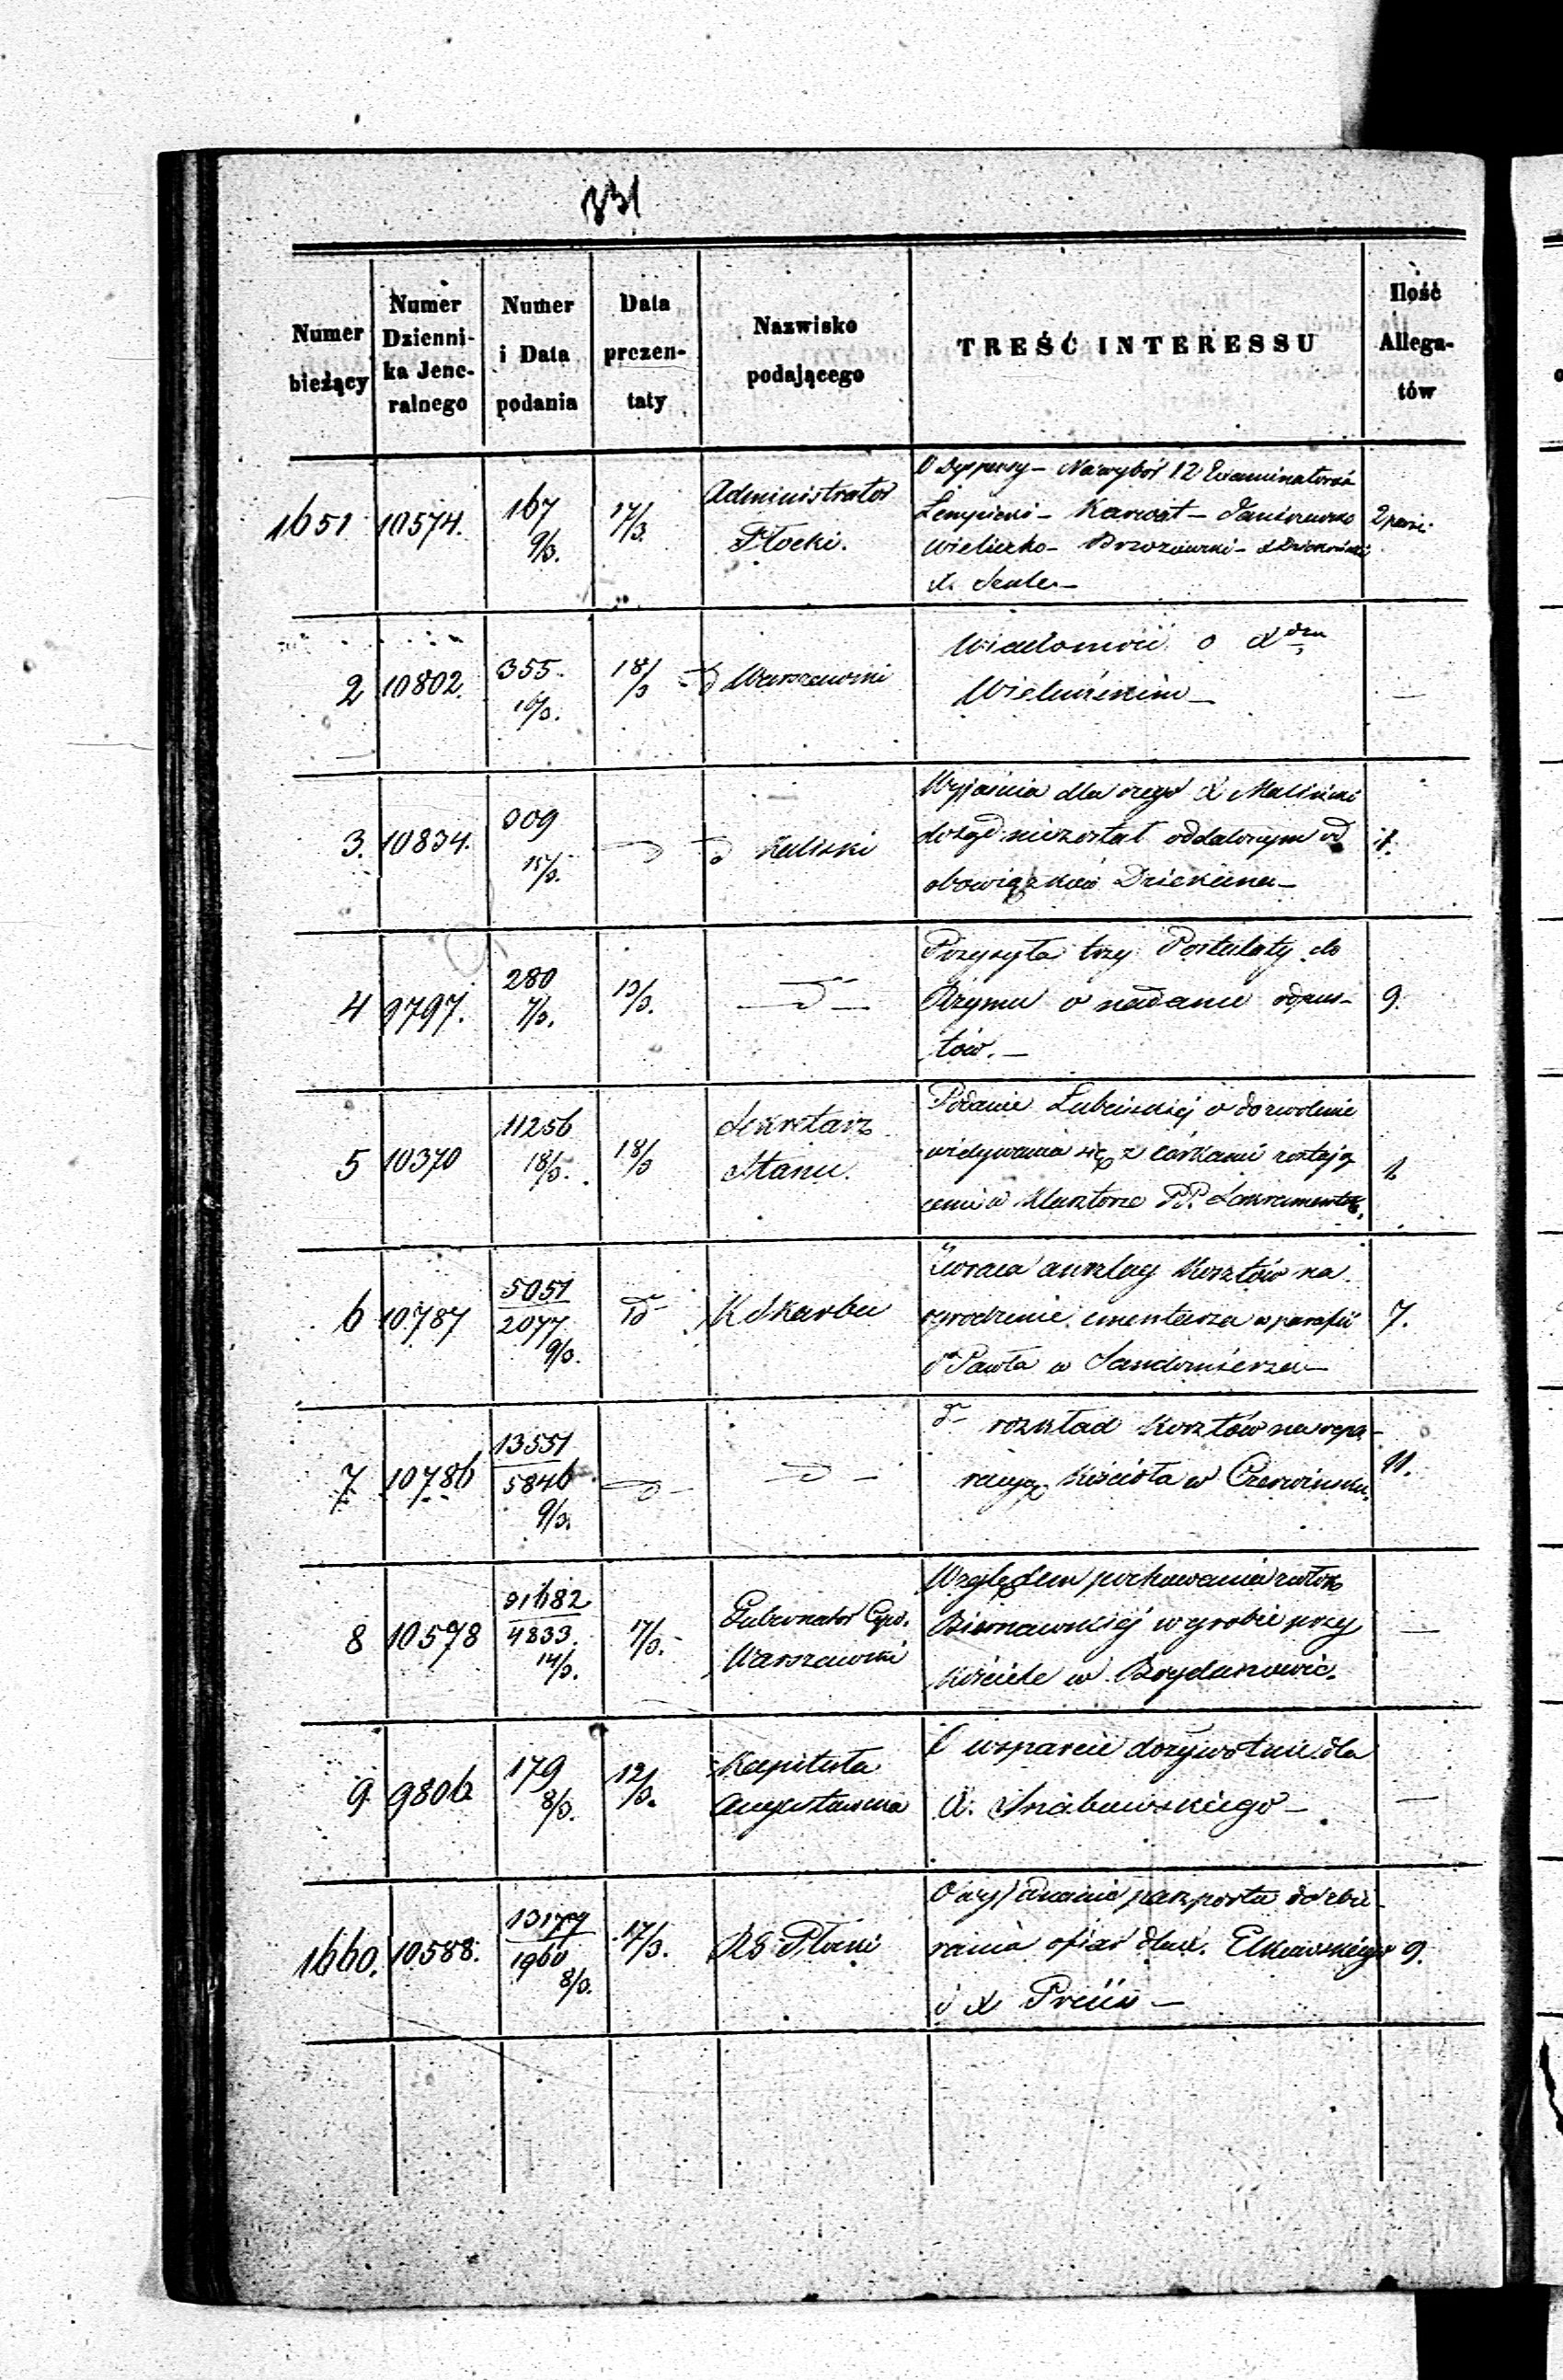 331
Numer bieżący
Numer Dzienni- ka Jene- ralnego
Numer i Data podania
Data prezen- taty
Nazwisko podającego
TREŚĆ INTERESSU
Ilość Allega- tów
1651 10574. 167 9/3. 17/3. Administrator Płocki.
O Dyspensy - Na wybór 12 Examinatorów
Karwat -
Wieliczko - Brzozowski -
X.
2 10802. 355. 16/3. 18/3 d Warszawski
Wiadomość o X
Wieluńskim -
3. 10834. 309 15/3. d d Kaliski
Wyjaśnia dla czego X Maliński
dotąd niezostał oddalonym od
obowiązków Dziekana -
4 9797. 280 7/3. 13/3. d
Przysyła trzy Postulaty do 9.
Rzymu o nadanie odpus-
tów. -
5 10370 11256 18/3. 18/3 Sekretarz Stanu.
Podanie Lubińskiej o dozwolenie
widywania się z córkami zostają
cemi w Klasztorze PP. Sakramentek.
6 10787 5051 2077 9/3. d K Skarbu
Zwraca anszlag kosztów na
ogrodzenie cmentarza w parafii 7.
S Pawła w Sandomierzu -
7 10786 13551 5846 9/3. d d
d rozkład kosztów na repa-
racyą Kościoła w Czerwińsku. 11.
8 10578 31682 4833. 14/3. 17/3. Gubernator Cyw. Warszawski
Względem pochowania zwłok
Biernawskiej w grobie przy
Kościele w Bogdanowie. —
9 9806 179 8/3. 12/3. Kapituła Augustowska
O wsparcie dożywotnie dla
X. —
1660. 10588. 13177 1960 8/3. 17/3. RG Płocki
O wydanie paszportu do zbie-
rania ofiar dla X. 9.
i X